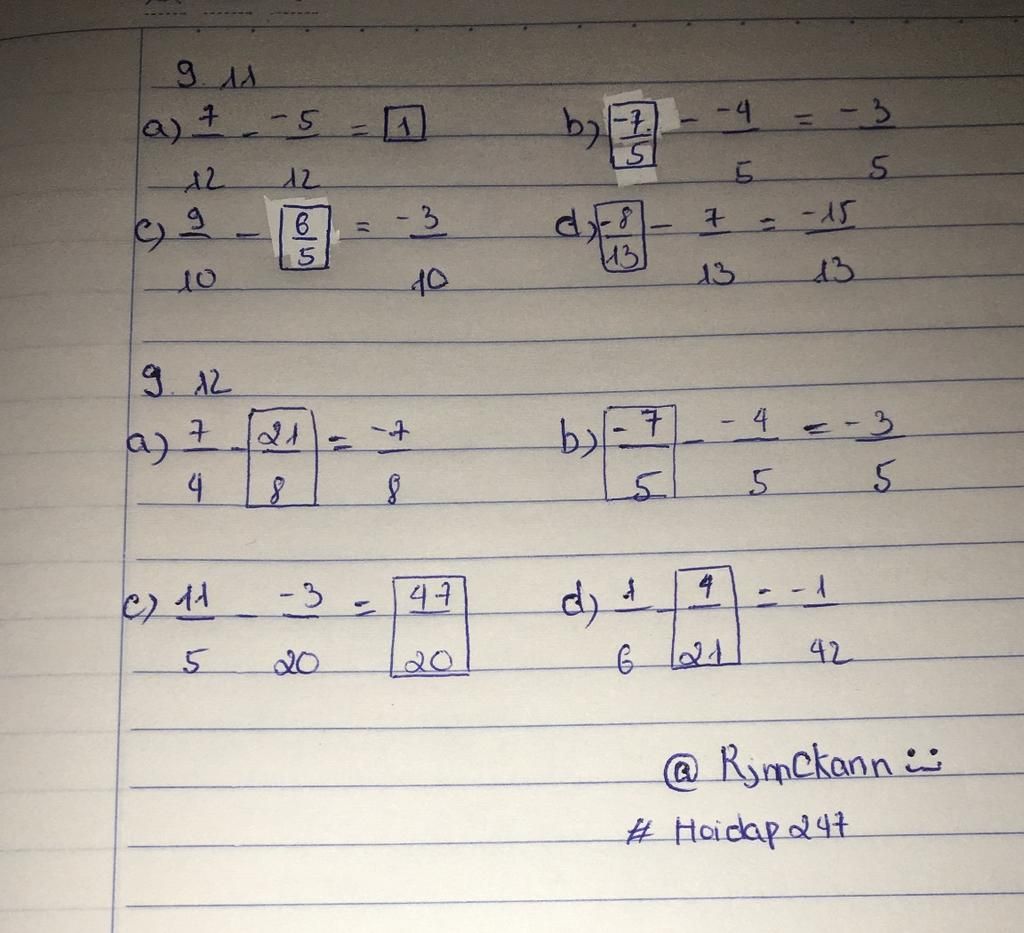 9.11
a) 7/12 - -5/12 = 1 b) -7/5 - -4/5 = -3/5
c) 9/10 - 6/5 = -3/10 d) -8/13 - 7/13 = -15/13
9.12
a) 7/4 - 21/8 = -7/8 b) -7/5 - -4/5 = -3/5
c) 11/5 - -3/20 = 47/20 d) 1/6 - 4/21 = -1/42
@ RjmCkann
# Hoidap247